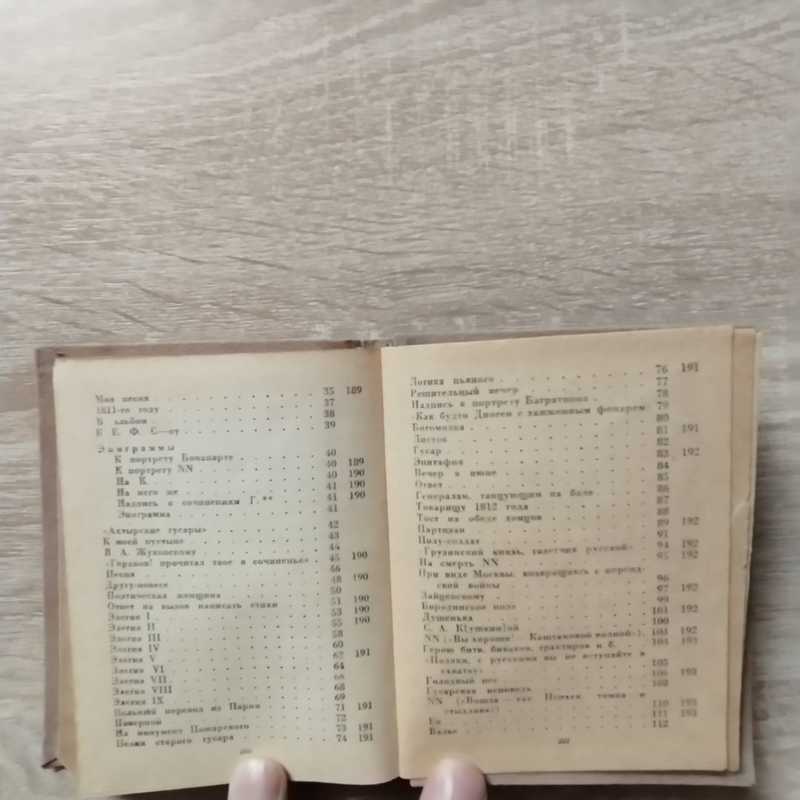 Моя песня 35 189
1811-го году 37
В альбом 38
К Е. Ф. С—ну 39
Эпиграммы
К портрету Бонапарте 40
К портрету NN 40 189
На К. 40 190
На него же 41 190
Надпись к сочинениям Г.** 41 190
Эпиграмма 41
«Ахтырские гусары» 42
К моей пустыне 43
В. А. Жуковскому 44
прочитал твое я сочиненье» 45 190
Песня 46
Другу-повесе 48 190
Поэтическая женщина 50
Ответ на вызов написать стихи 51 190
Элегия I 53 190
Элегия II 55 190
Элегия III 58
Элегия IV 60
Элегия V 62 191
Элегия VI 64
Элегия VII 66
Элегия VIII 68
Элегия IX 69
Вольный перевод из Парни 71 191
72
На монумент Пожарского 73 191
Песня старого гусара 74 191
Логика пьяного 76 191
Решительный вечер 77
Надпись к портрету Багратиона 78
«Как будто Диоген с зажженным фонарем» 79
Богомолка 80
Листок 81 191
Гусар 82
Эпитафия 83 192
Вечер в июне 84
Ответ 85
Генералам, танцующим на бале 86
Товарищу 1812 года 87
Тост на обеде 88
Партизан 89 192
Полу-солдат 91
«Грузинский князь, русской» 94 192
На смерть NN 95 192
При виде Москвы, возвращаясь с персид-
ской войны 96
Зайцевскому 97 192
Бородинское поле 99
Душенька 101 192
С. А. К[ушкин]ой 100
NN («Вы хороши! Каштановой волной») 103 192
Герою битв, биваков, трактиров и б. 104 193
«Поляки, с русскими вы не вступайте в
схватку» 105
Голодный пес 106 193
Гусарская исповедь 108
NN («Вошла как Психея, томна и
стыдлива») 110 193
Ей 111 193
Вальс 112